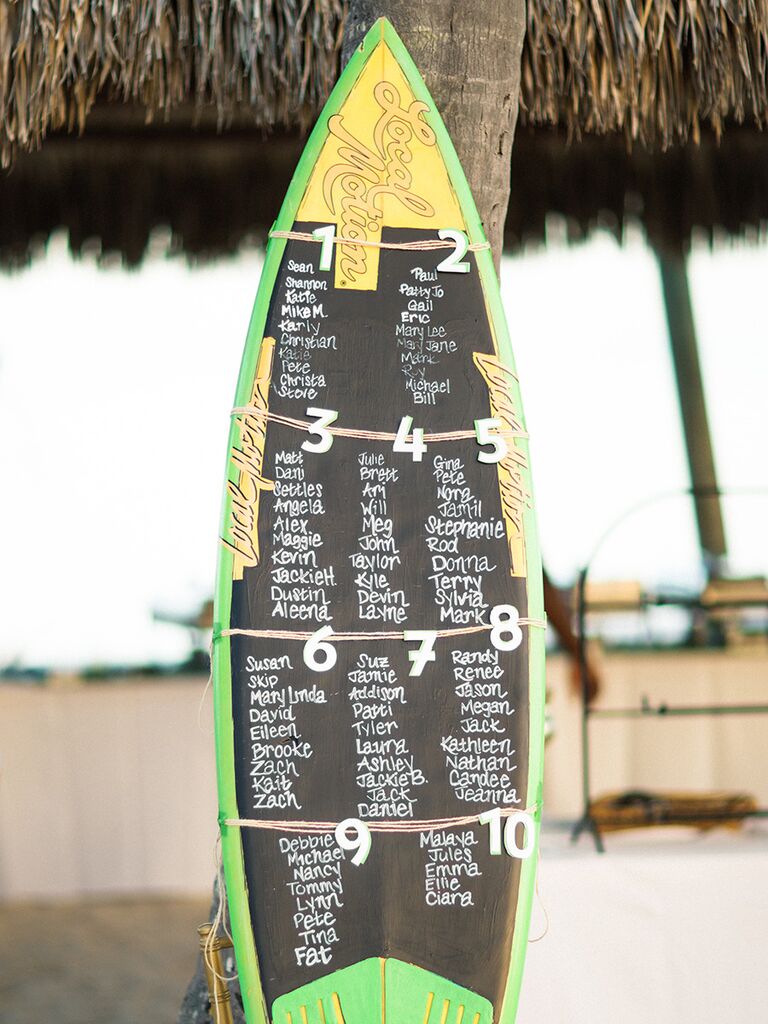 Local
Motion
1
Sean
Shannon
Katie
Mike M.
Karly
Christian
Katie
Pete
Christa
Steve
2
Paul
Patty Jo
Gail
Eric
Mary Lee
Mary Jane
Mark
Roy
Michael
Bill
Local Motion
Local Motion
3
Matt
Dani
Settles
Angela
Alex
Maggie
Kevin
Jackie H.
Dustin
Aleena
4
Julie
Brett
Ari
Will
Meg
John
Taylor
Kyle
Devin
Layne
5
Gina
Pete
Nora
Jamil
Stephanie
Rod
Donna
Terry
Sylvia
Mark
6
Susan
Skip
Mary Linda
David
Eileen
Brooke
Zach
Kait
Zach
7
Suz
Jamie
Addison
Patti
Tyler
Laura
Ashley
Jackie B.
Jack
Daniel
8
Randy
Renee
Jason
Megan
Jack
Kathleen
Nathan
Candee
Jeanna
9
Debbie
Michael
Nancy
Tommy
Lynn
Pete
Tina
Fat
10
Malaya
Jules
Emma
Ellie
Ciara